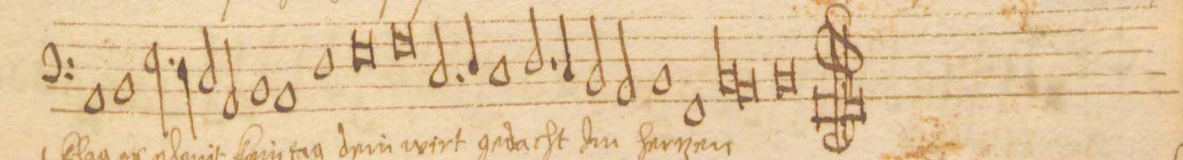 klag er demit kein tag dein wirt gedacht Im hertzen